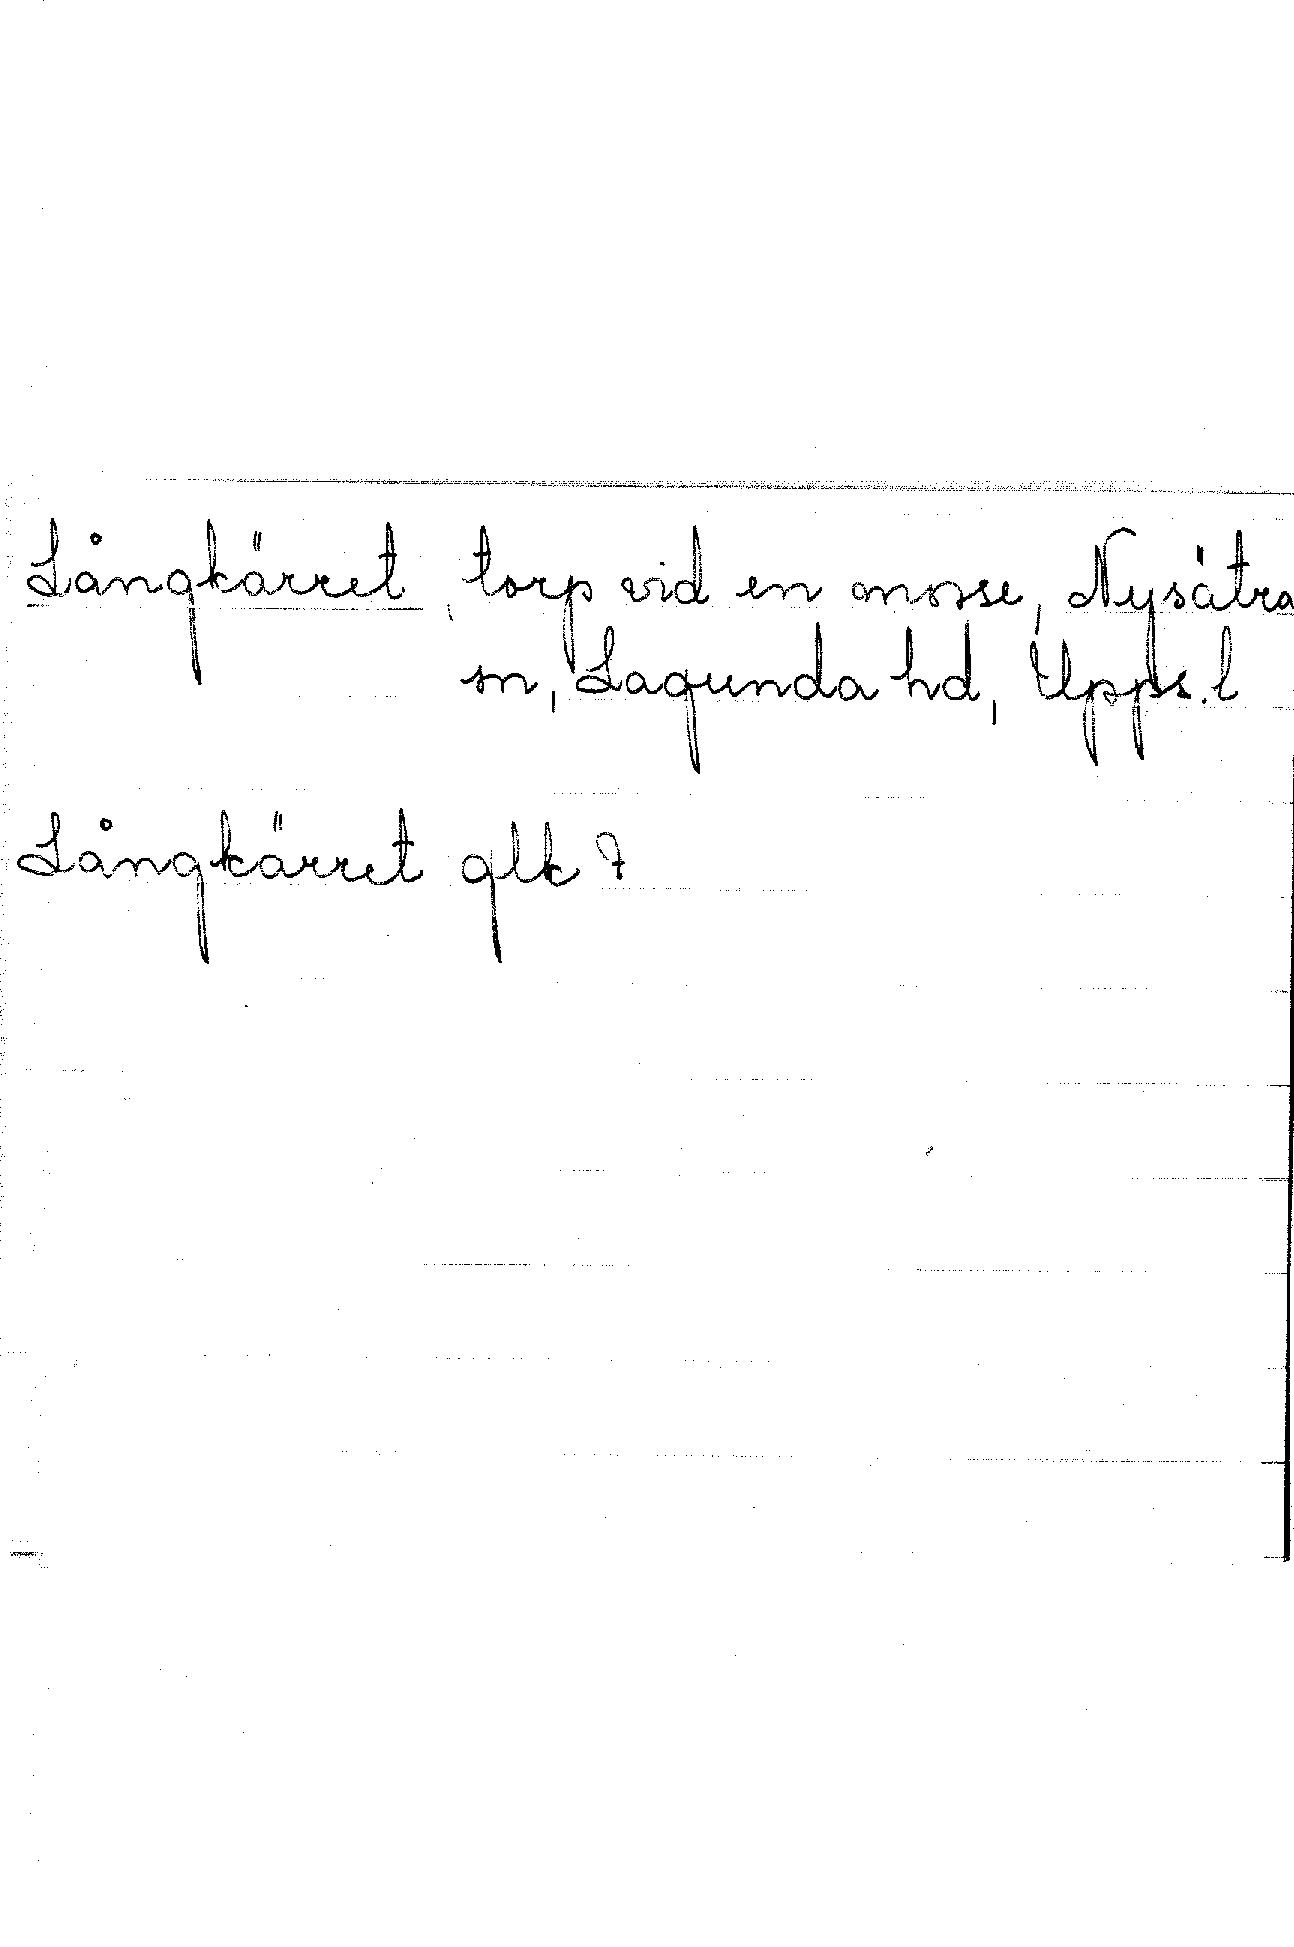 Långkärret, torp vid en mosse, Nysätra
sn, Lagunda hd, Upps. l
Långkärret glk 7